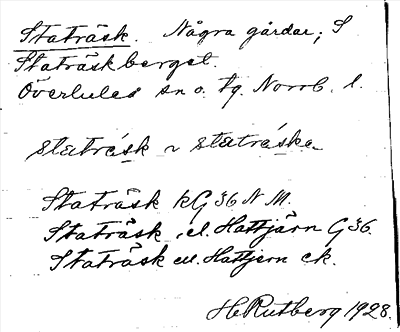 Staträsk. Några gårdar; S
Staträskberget.
Överluleå sn o. tg. Norrb. l.
stαtrásk ~ stαtráska
Staträsk kG 36 N M.
Staträsk el. Hattjärn G 36.
Staträsk ell. Hattjern ek.
H Rutberg 1928.